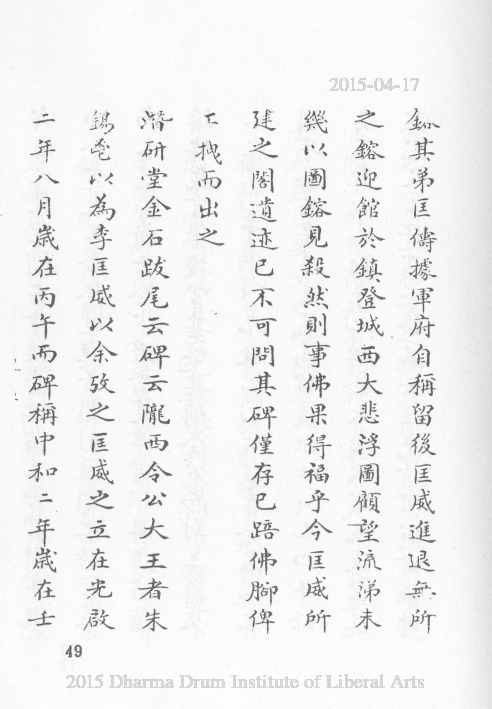 2015-04-17
鈲其弟匡儔據軍府自稱留後匡威進退無所
之鎔迎館於鎮登城西大悲浮圖顧望流涕未
幾以圖鎔見殺然則事佛果得福乎今匡威所
建之閣遺迹已不可問其碑僅存已踣佛腳俾
工拽而出之
潛研堂金石跋尾云碑云隴西令公大王者朱
錫鬯以為李匡威以余攷之匡威之立在光啟
二年八月歲在丙午而碑稱中和二年歲在壬
49
2015 Dharma Drum Institute of Liberal Arts